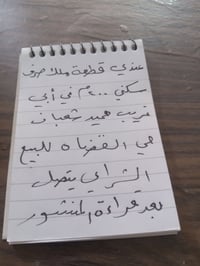 عندي قطعة ملك صرف
سكني ٢٠٠م في أبي
غريب حميد شعبان
حي القضاة للبيع
الشراي يتصل
بعد قراءة المنشور